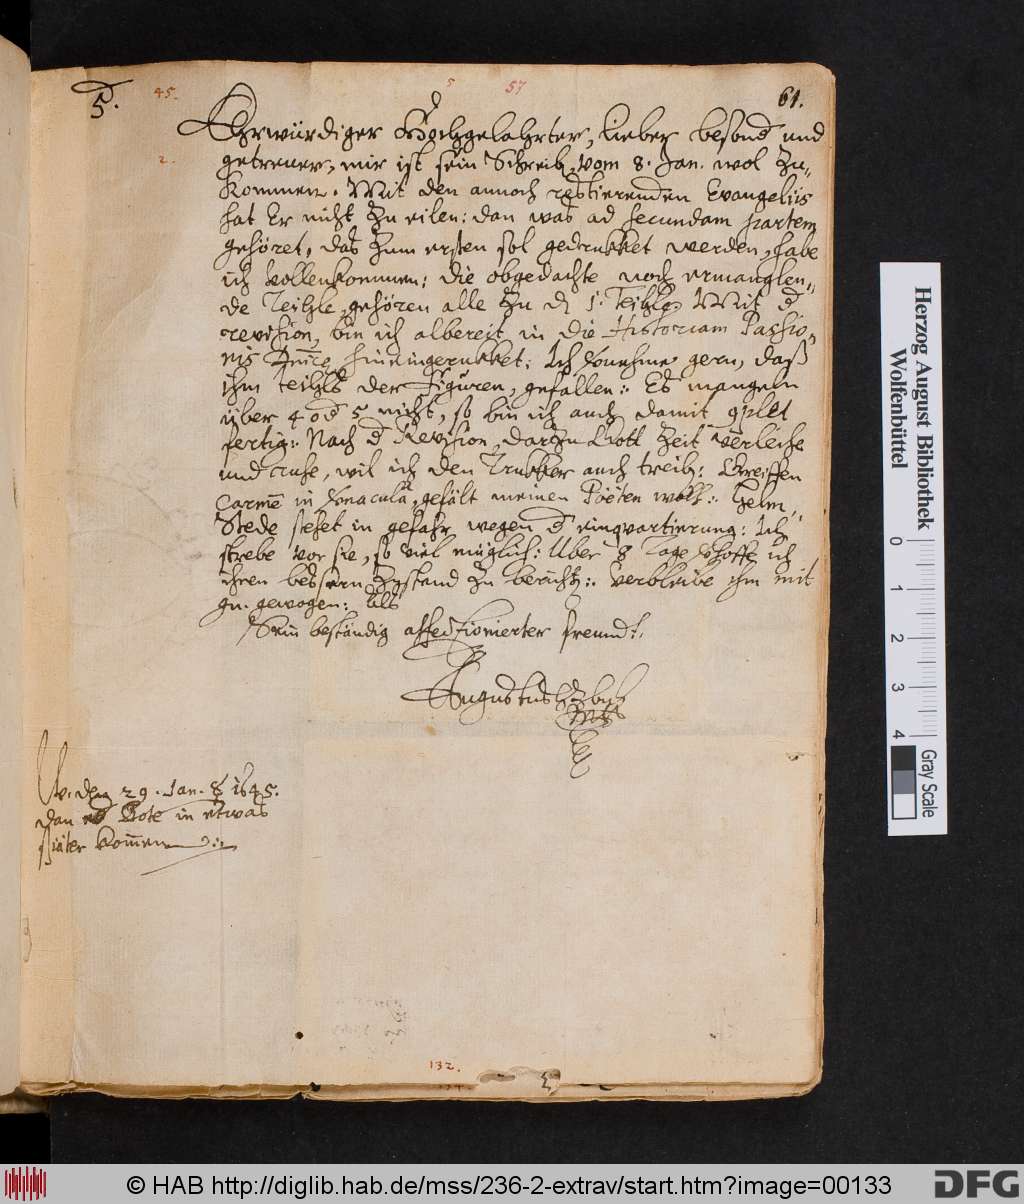 5.
45.
5
57
61.
Ehrwürdiger Hochgelahrter, lieber besond und
2.
getrewer, mir ist sein Schreib. vom 8. Jan. wol zu„
kommen. Mit den annoch restierenden Evangeliis
hat Er nicht zu eilen: dan was ad secundam partem
gehöret, das zum ersten sol gedrukket werden, habe
ich vollenkommen: die obgedachte noch ermanglen„
de Teihle, gehören alle zu d 1. Teihle. Mit d
revision, bin ich albereit in die Historiam Passio„
nis hineingerukket: Ich gern, daß
ihm teihls der Figuren, gefallen: Es mangeln
über 4 od 5 nicht, so bin ich auch damit
fertig: Nach d Revision, darzu Gott Zeit verleihe
und ruhe, wil ich den Trukker auch treib: Greiffen
Carmē in gefält meinen Poëten wohl: Helm„
Stede stehet in gefahr wegen d einqvartierung: Ich
strebe vor sie, so viel müglich: Uber 8 Tage hoffe ich
ihren bessern Zustand zu bericht: Verbleibe ihm mit
gn. gewogen: Als
Sein beständig affectionierter freund.
Augustus HzbuL
W. den 29. Jan. 1645.
dan Bote in etwas
später kommen
132.
Herzog August Bibliothek
Wolfenbüttel
0 1 2 3 4
Gray Scale
© HAB http://diglib.hab.de/mss/236-2-extrav/start.htm?image=00133
DFG